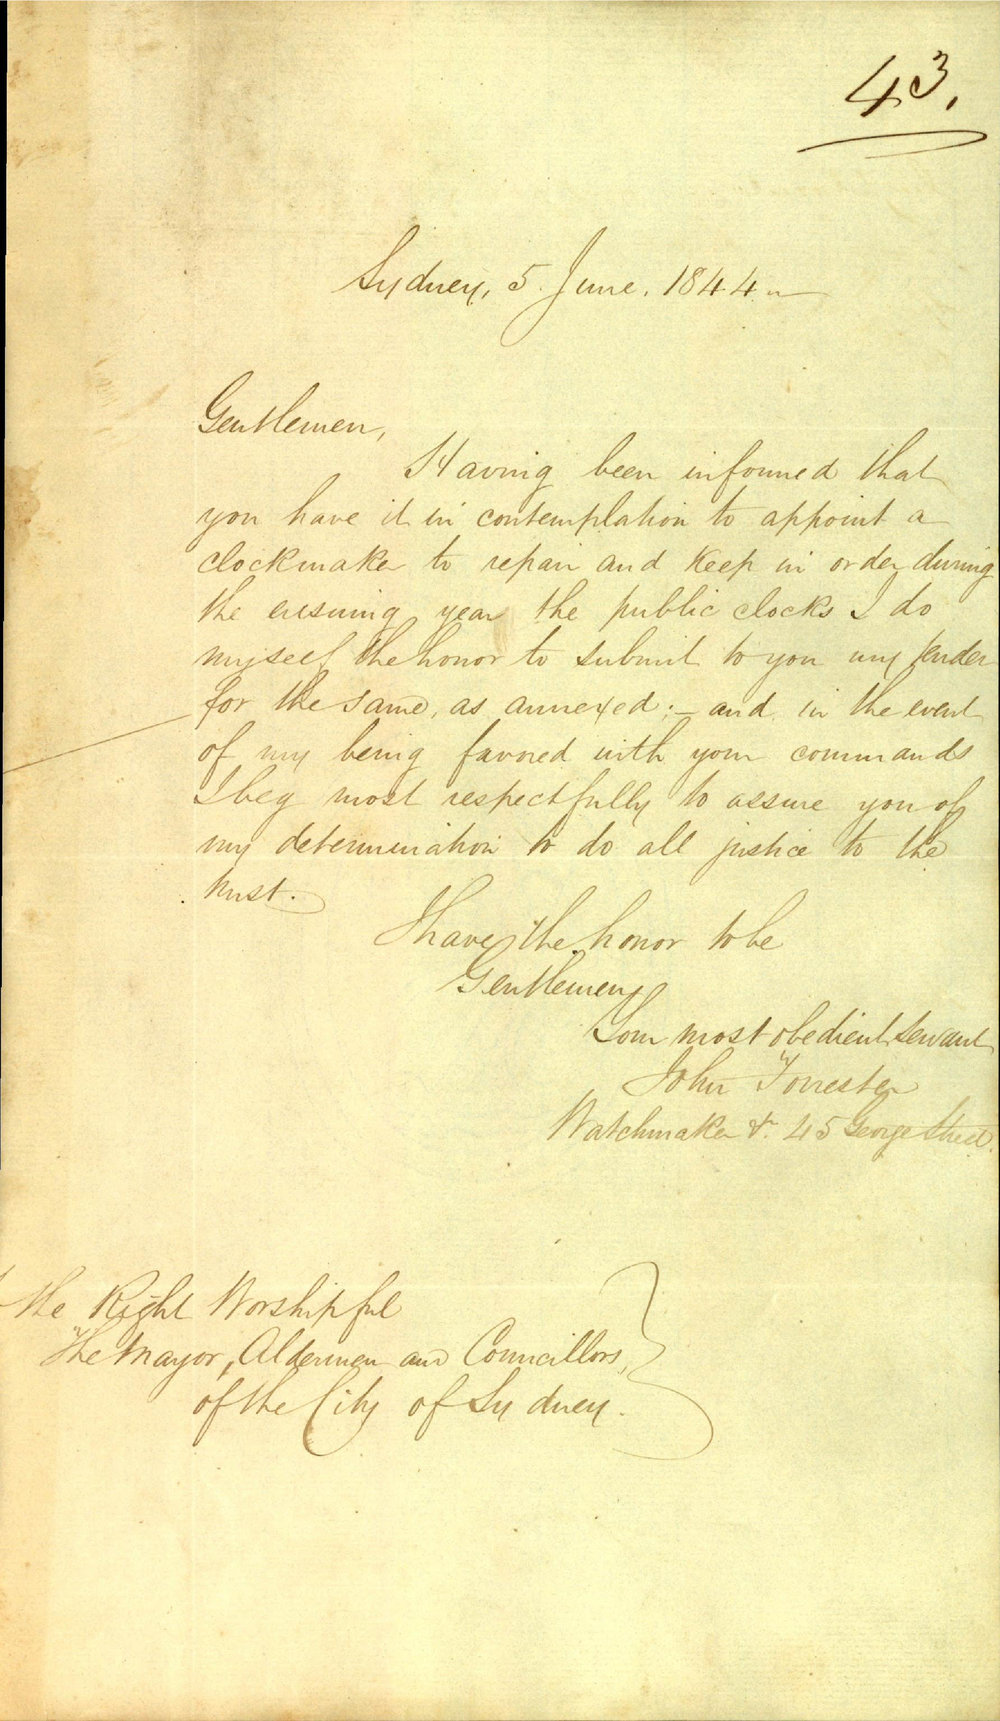 43.
Sydney, 5. June. 1844
Gentlemen,
Having been informed that
you have it in contemplation to appoint a
clockmaker to repair and keep in order during
the ensuing year the public clocks I do
myself the honor to submit to you my tender
for the same, as annexed:- and in the event
of my being favored with your commands
I beg most respectfully to assure you of
my determination to do all justice to the
trust.
I have the honor to be
Gentlemen
Your most obedient servant
John Forrester
Watchmaker &. 45 George Street.
the Right Worshipful
The Mayor, Aldermen and Councillors,
of the City of Sydney.